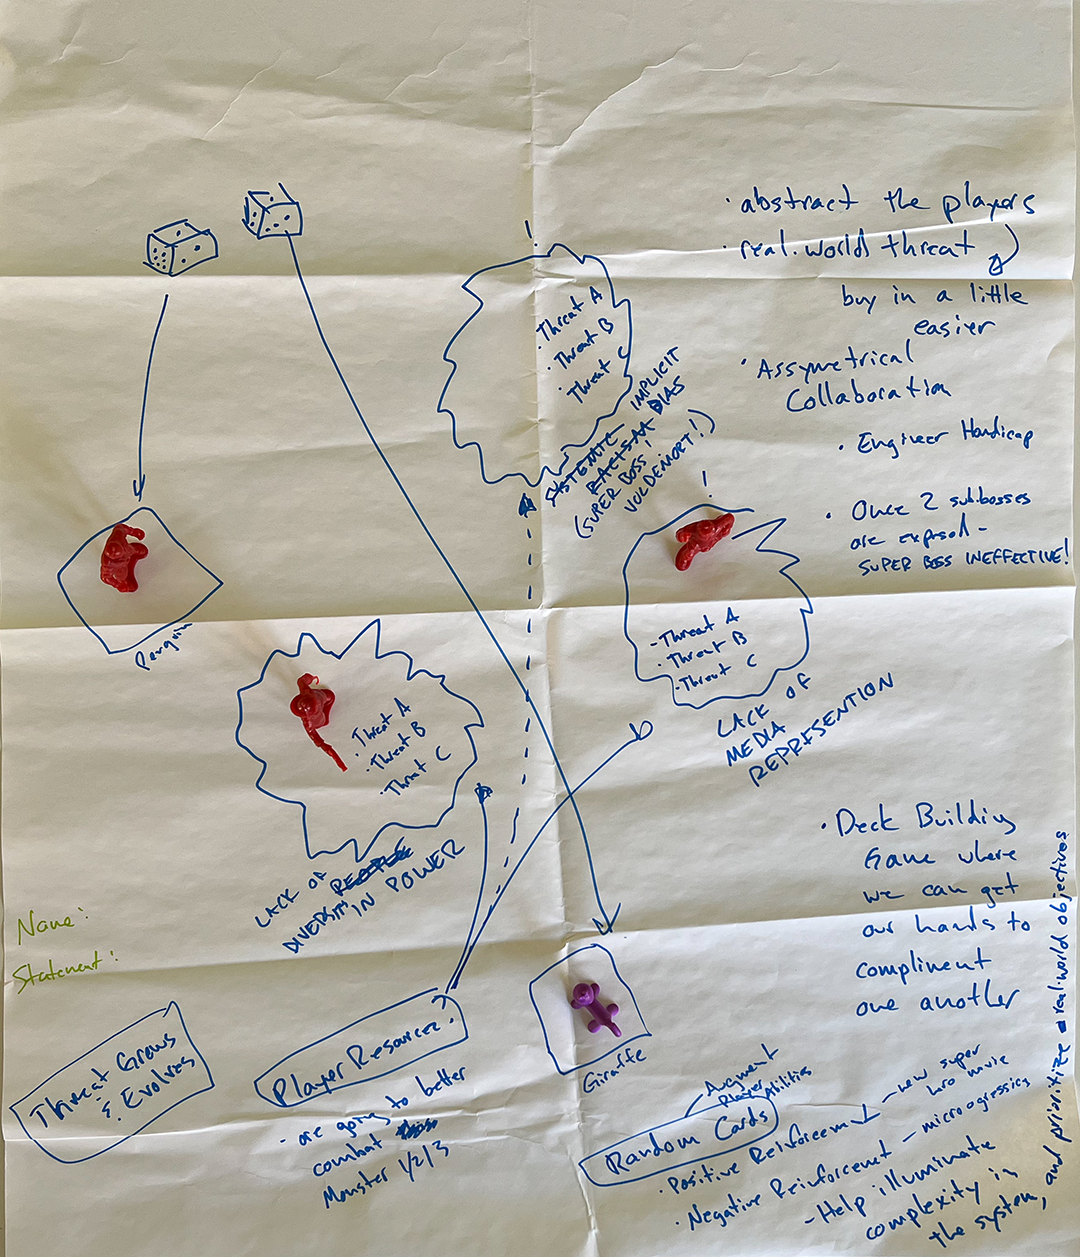 · abstract the players
· real.world threat
buy in a little
easier
· Assymetrical
Collaboration
· Engineer Handicap
· Once 2 sub.bosses
are exposed -
SUPER BOSS INEFFECTIVE!
!
· Threat A
· Threat B
· Threat C
IMPLICIT
SYSTEMIC BIAS
RACISM
(SUPER BOSS,
VOLDEMORT!)
!
- Threat A
· Threat B
· Threat C
LACK OF
MEDIA
REPRESENTION
Penguin
· Threat A
· Threat B
· Threat C
LACK OF PEOPLE
DIVERSITY IN POWER
· Deck Building
Game where
we can get
our hands to
compliment
one another
Name:
Statement:
Threat Grows
& Evolves
Player Resources.
- are going to better
combat
Monster 1/2/3
Giraffe
Augment
Player Abilities
Random Cards
· Positive Reinforcem
- new super
hero movie
· Negative Reinforcement - microagressions
- Help illuminate
complexity in
the system, and prioritize real.world objectives